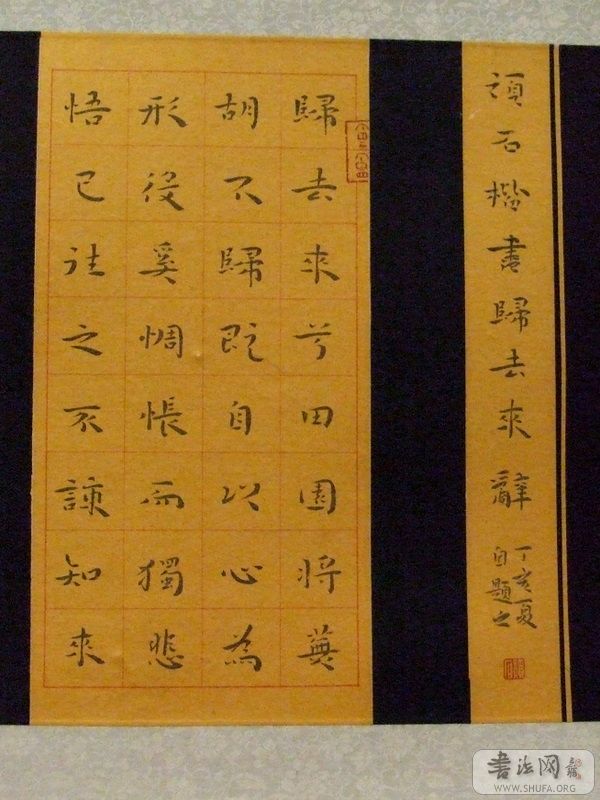 石楷書歸去來辭
丁亥夏
自題之
歸去來兮田園將蕪
胡不歸既自以心為
形役奚惆悵而獨悲
悟已往之不諫知來
書法网
WWW.SHUFA.ORG